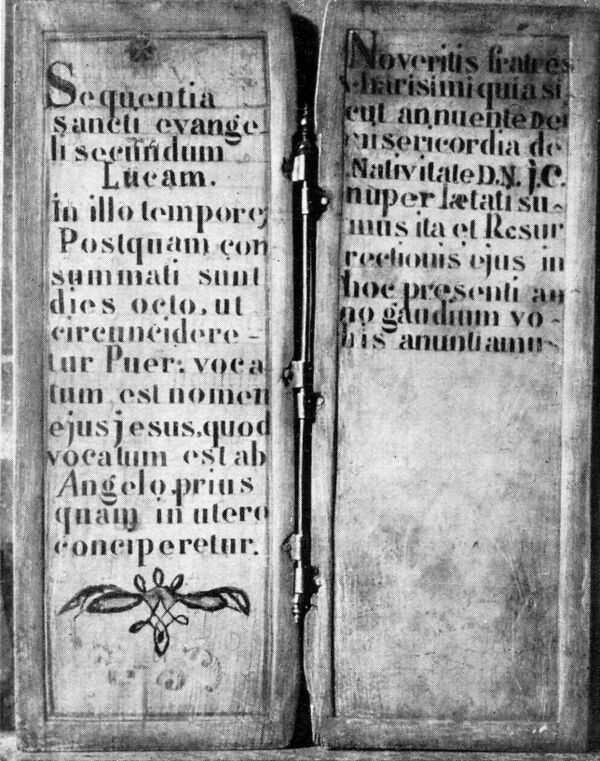 Sequentia
sancti evange
li secundum
Lucam.
In illo tempore,
Postquam con
summati sunt
dies octo, ut
circuncidere-
tur Puer: voca
tum est nomen
ejus jesus, quod
vocatum est ab
Angelo prius
quam in utero
conciperetur.
Noveritis fratres
charisimi quia si
cut annuente Dei
misericordia de
Nativitate D.N. j.C.
nuper lætati su-
mus ita et Resur
rectionis ejus in
hoc presenti an
no gaudium vo-
bis anuntiamu